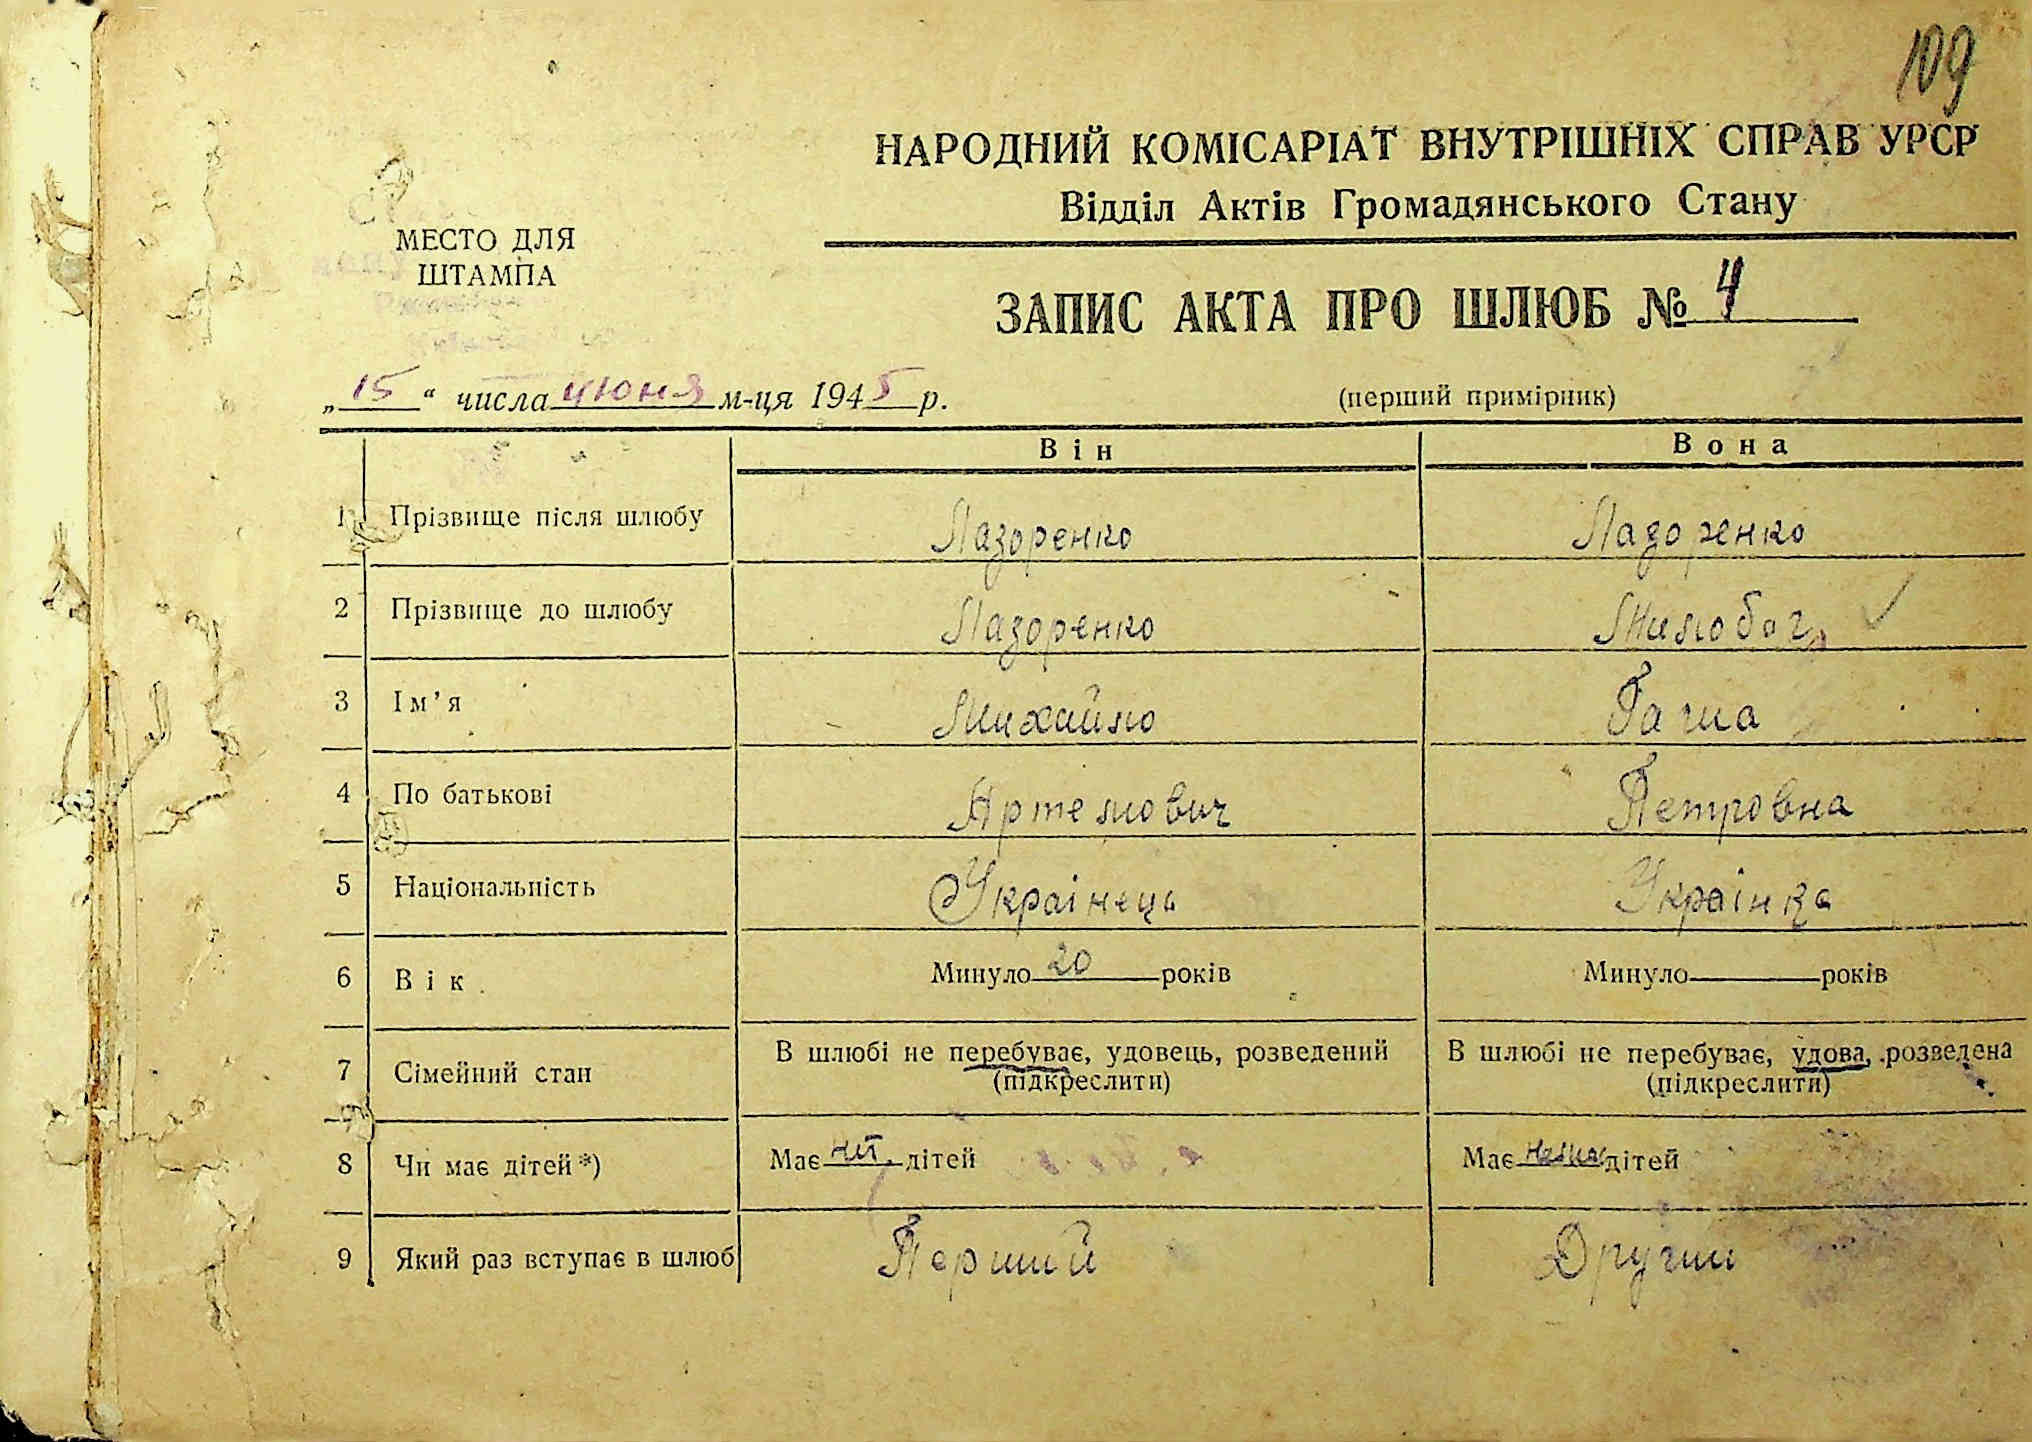 109
НАРОДНИЙ КОМІСАРІАТ ВНУТРІШНІХ СПРАВ УРСР
Відділ Актів Громадянського Стану
МЕСТО ДЛЯ
ШТАМПА
ЗАПИС АКТА ПРО ШЛЮБ № 4
„15“ числа июня м-ця 1945 р.
(перший примірник)
Він Вона
1 Прізвище після шлюбу Лазоренко Лазоренко
2 Прізвище до шлюбу Лазоренко
3 Ім'я Михайло Гаша
4 По батькові Артемович Петровна
5 Національність Українець Українка
6 Вік Минуло 20 років Минуло років
7 Сімейний стан В шлюбі не перебуває, удовець, розведений В шлюбі не перебуває, удова, розведена
(підкреслити) (підкреслити)
8 Чи має дітей*) Має нет дітей Має дітей
9 Який раз вступає в шлюб Перший Другий